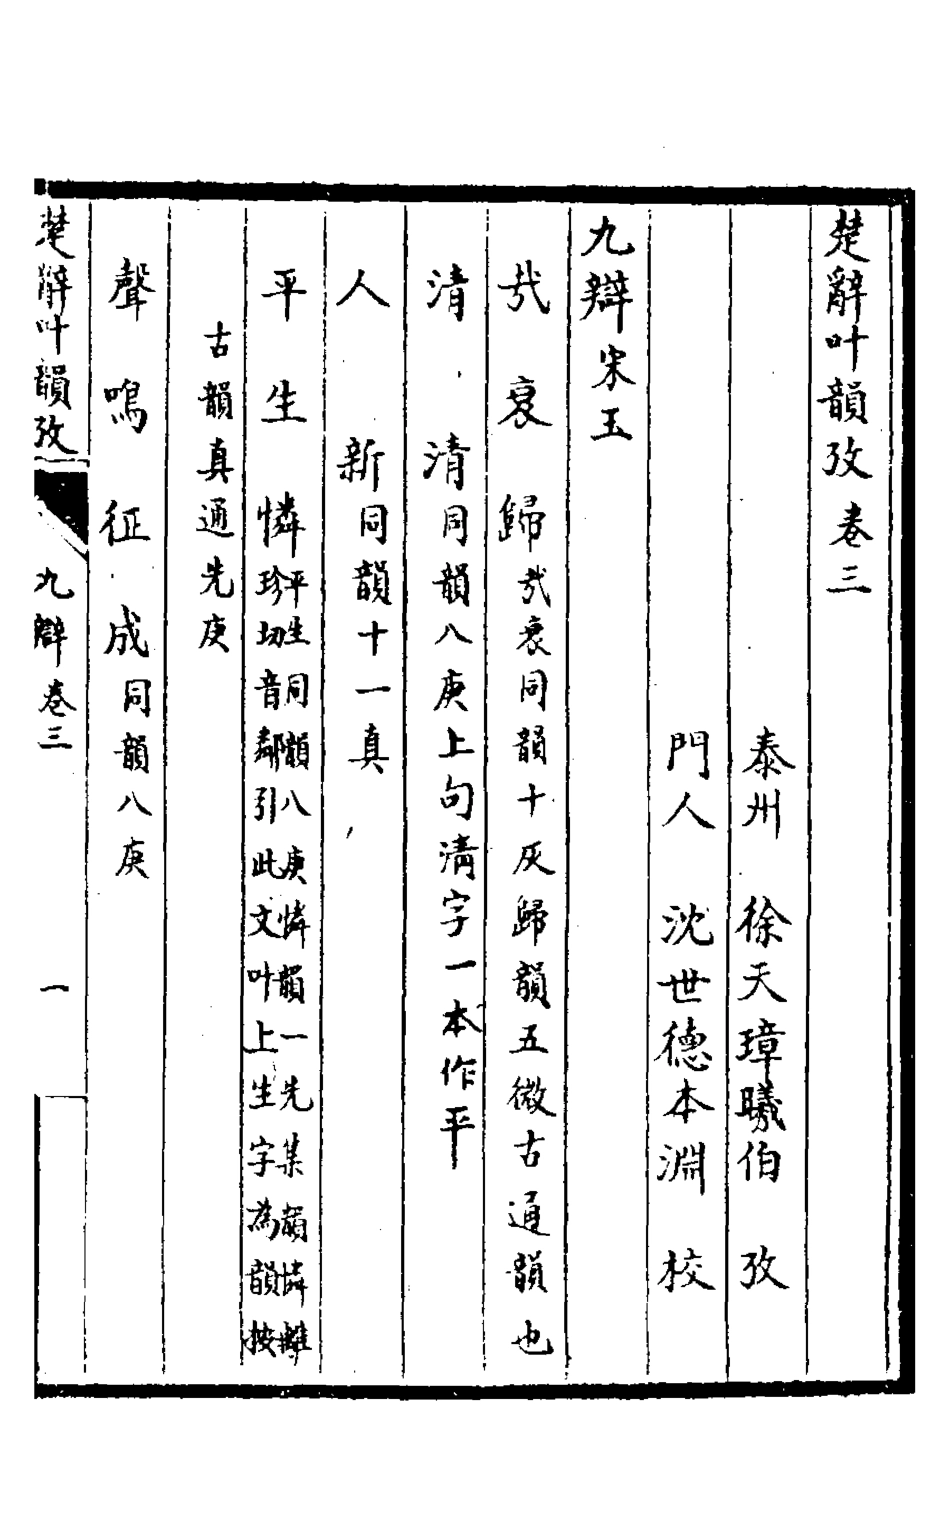 楚辭叶韻攷卷三
泰州 徐天璋曦伯 攷
門人 沈世德本淵 校
九辯宋玉
哉 衰 歸哉衰同韻十灰歸韻五微古通韻也
清 清同韻八庚上句清字一本作平
人 新同韻十一真
平 生 憐平生同韻八庚憐韻一先集韻憐離
珍切音鄰引此文叶上生字為韻按
古韻真通先庚
聲 鳴 征 成同韻八庚
楚辭叶韻攷 九辯卷三 一